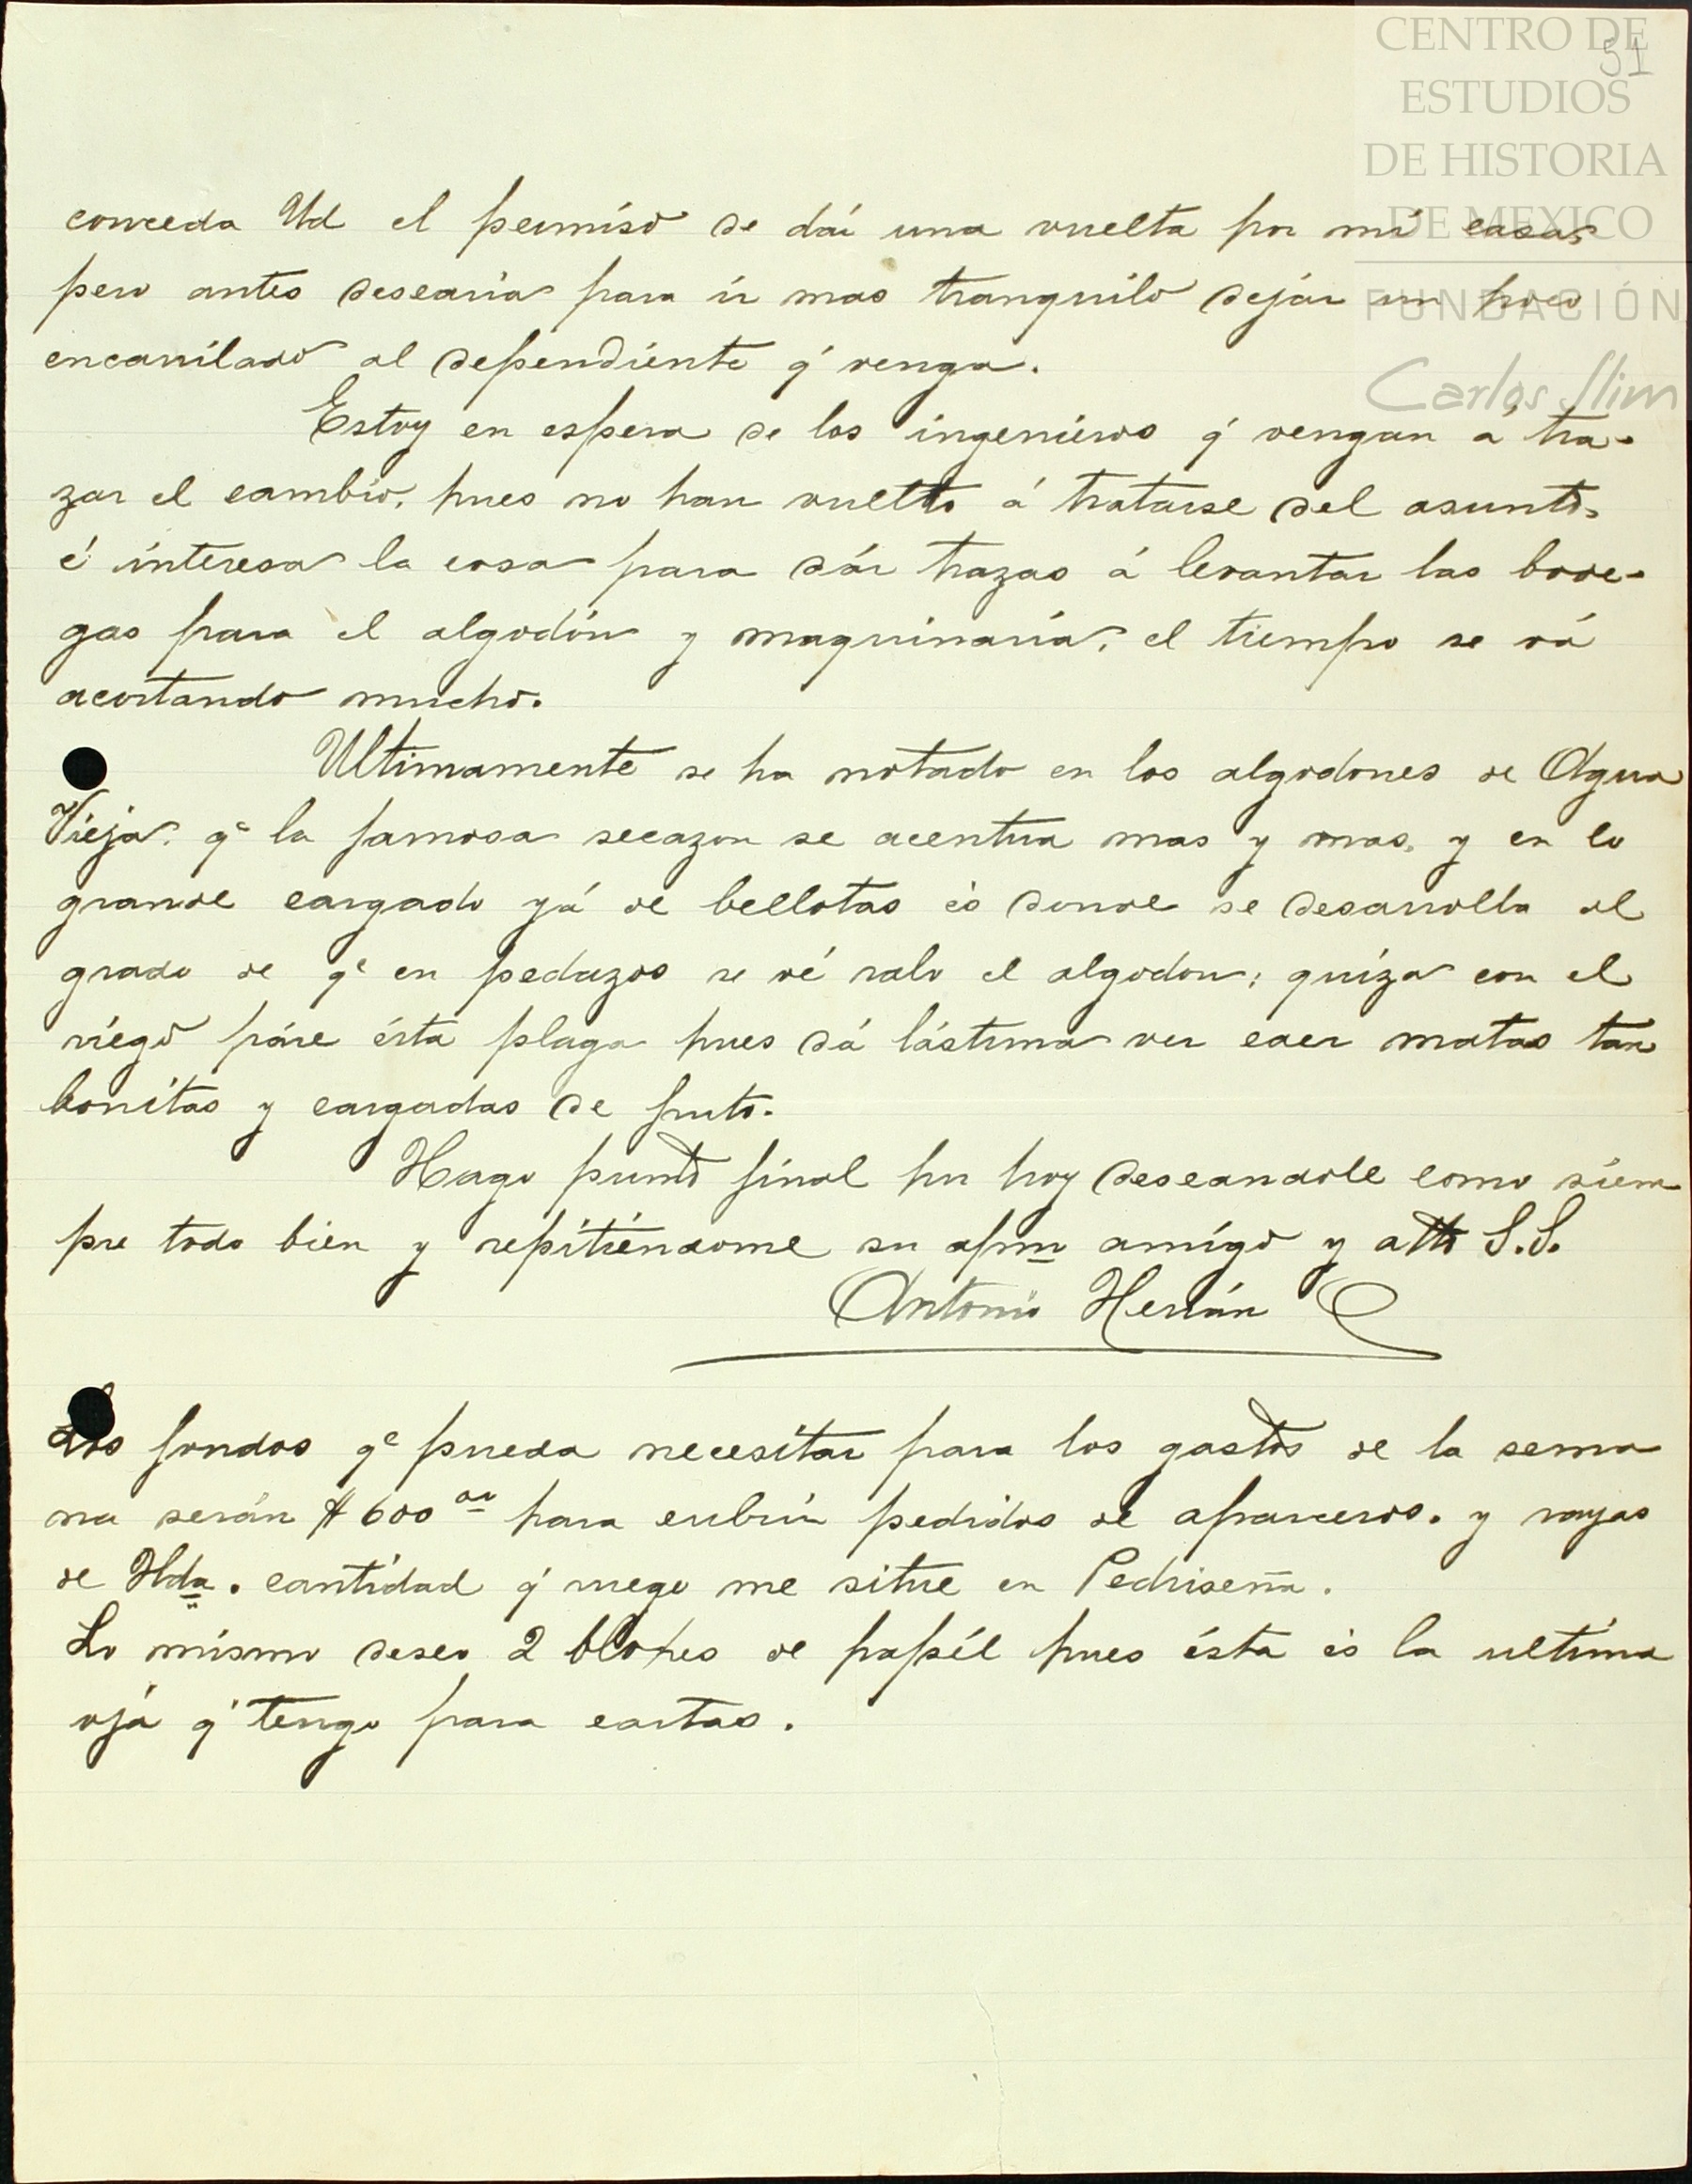 CENTRO DE
ESTUDIOS
DE HISTORIA
DE MEXICO
FUNDACIÓN
Carlos Slim
51
conceda Ud el permiso de dár una vuelta por mi casa,
pero antes desearia para ir mas tranquilo dejár un poco
encarrilado al dependiente q' venga.
Estoy en espera de los ingenieros q' vengan á tra-
zar el cambio, pues no han vuelto á tratarse del asunto,
é interesa la cosa para dár trazas á levantar las bode-
gas para el algodón y maquinaria, el tiempo se vá
acortando mucho.
Ultimamente se ha notado en los algodones de Agua
Vieja, qe la famosa secazon se acentua mas y mas, y en lo
grande cargado yá de bellotas és donde se desarrolla al
grado de qe en pedazos se vé ralo el algodon; quiza con el
riego páre ésta plaga pues dá lástima ver caer matas tan
bonitas y cargadas de fruto.
Hago punto final por hoy deseandole como siem
pre todo bien y repitiéndome su afmo amigo y atto S.S.
Antonio Herrán
Los fondos qe pueda necesitar para los gastos de la sema
na serán $600 oo para cubrir pedidos de aparceros. y rayas
de Hda. cantidad q' ruego me sitúe en Pedriseña.
Lo mismo deseo 2 blokes de papél pues ésta és la ultima
oja q' tengo para cartas.